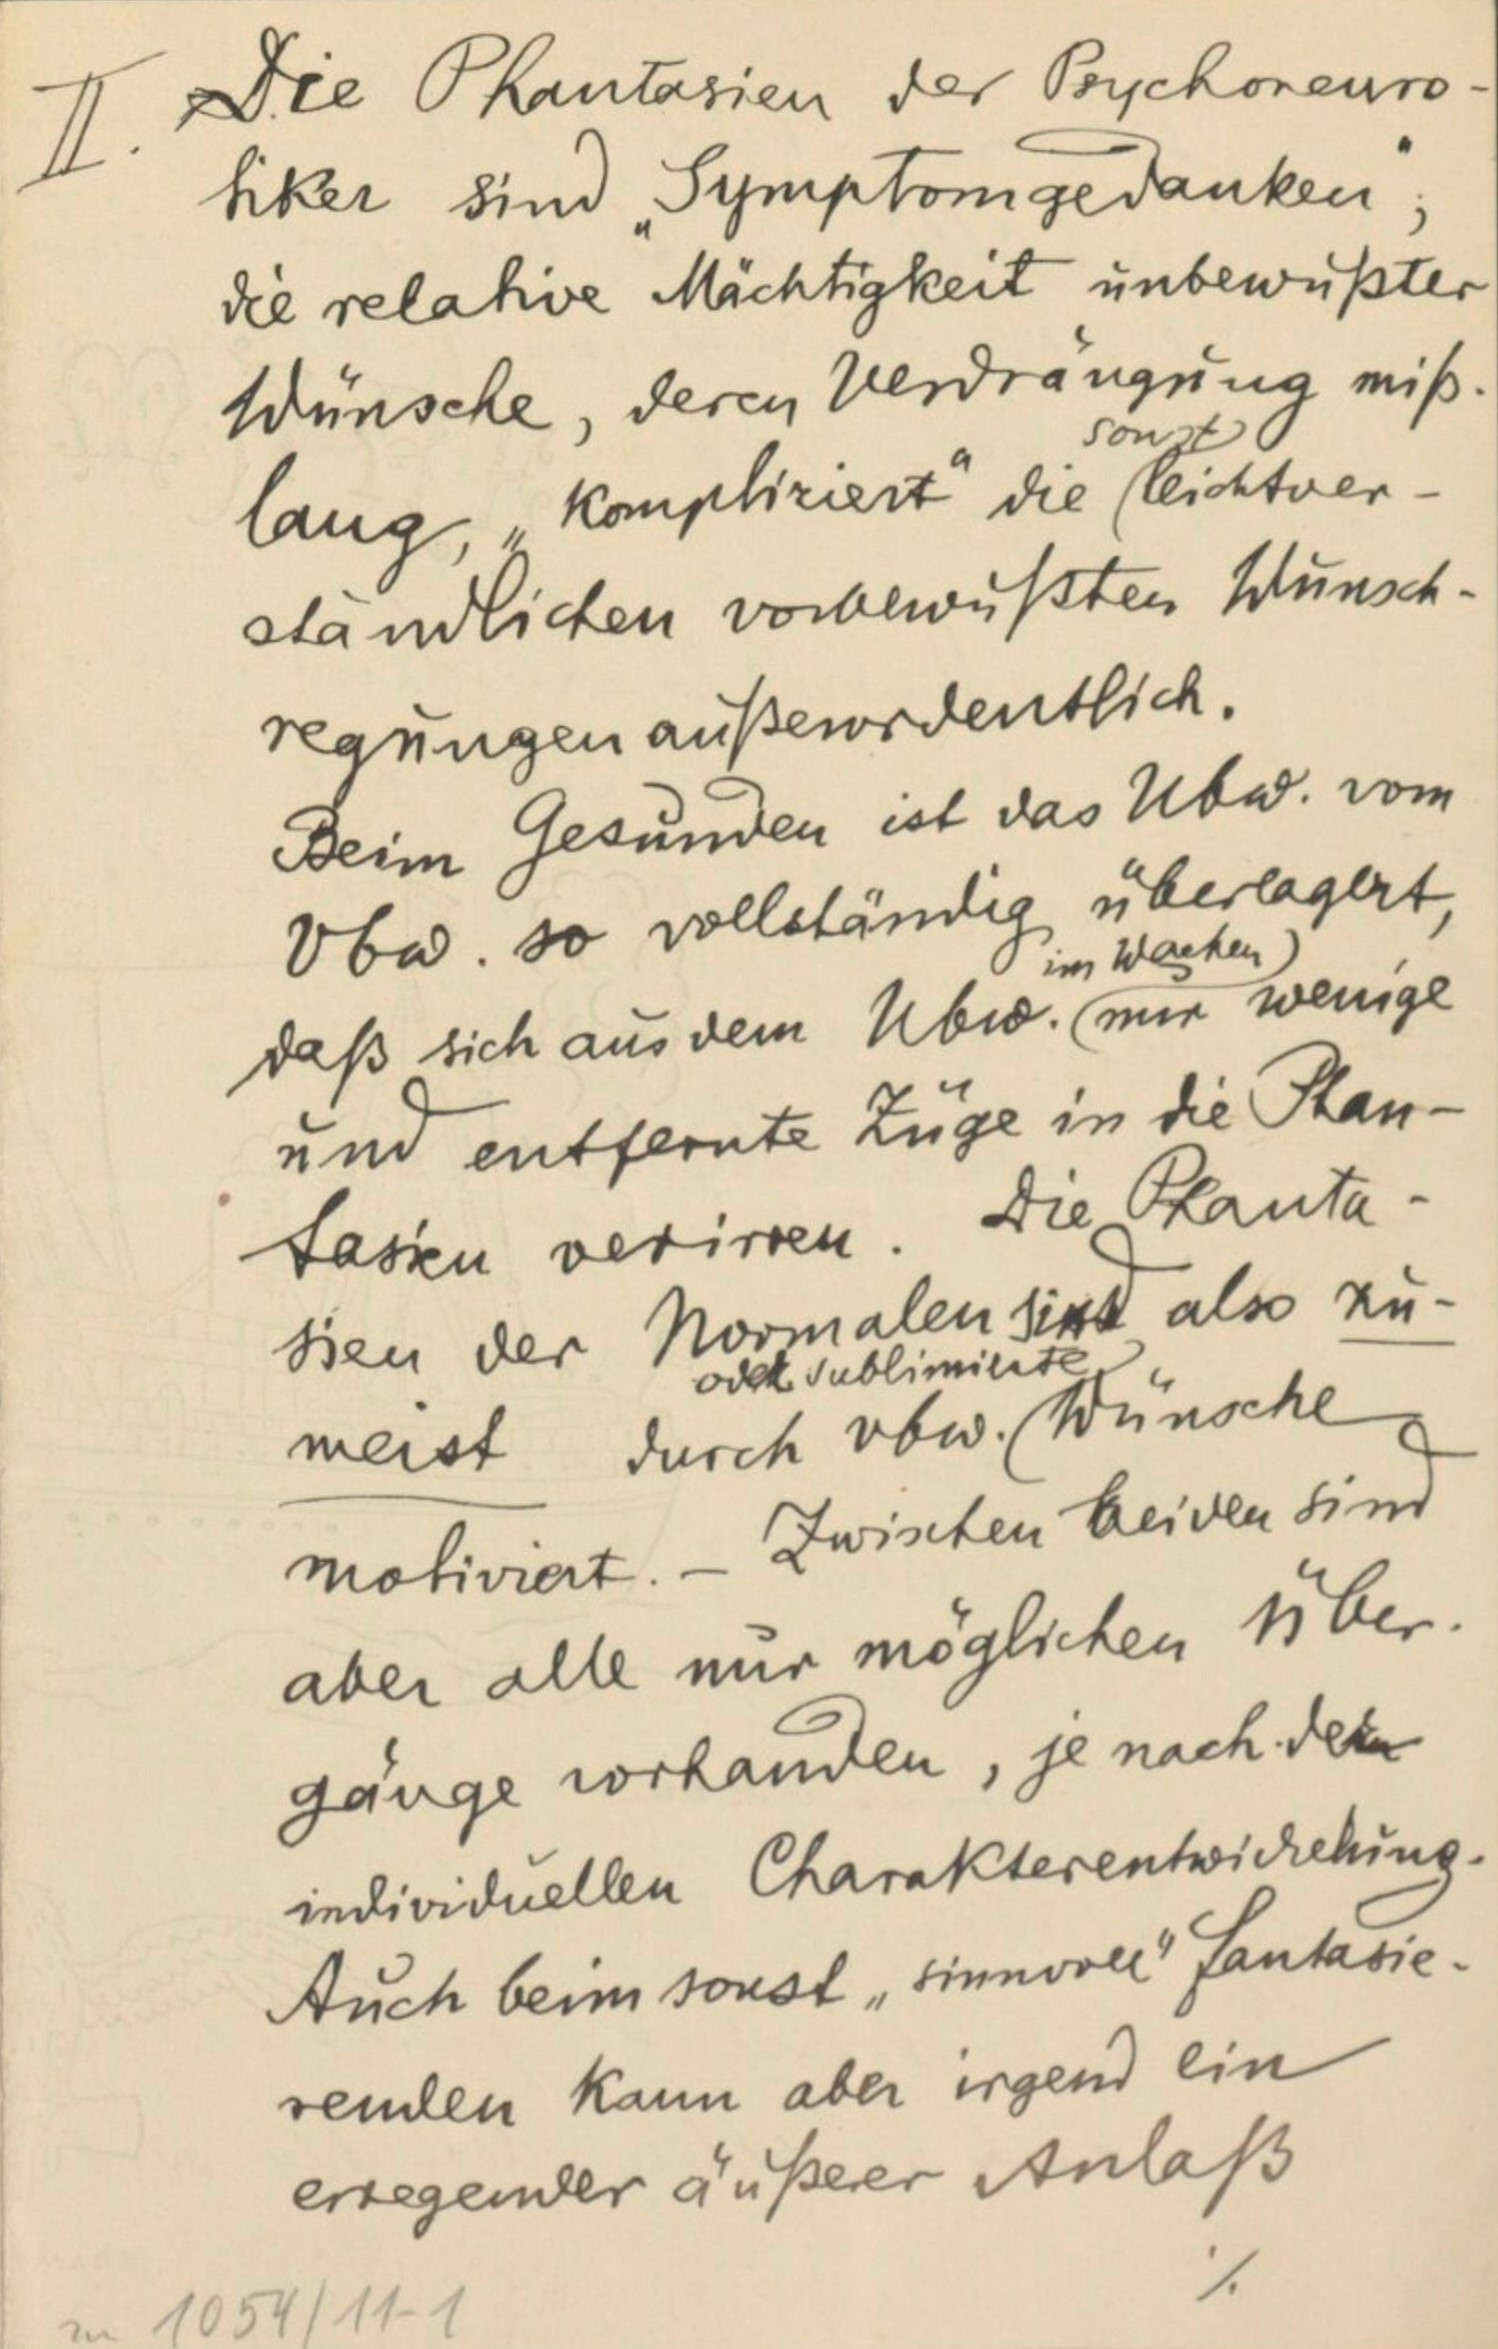 II. Die Phantasien der Psychoneuro-
tiker sind „Symptomgedanken";
die relative Mächtigkeit unbewußter
Wünsche, deren Verdrängung miß-
sonst
lang, „kompliziert" die leichtver-
ständlichen vorbewußten Wunsch-
regungen außerordentlich.
Beim Gesunden ist das Ubw. vom
Vbw. so vollständig überlagert,
im Wachen
daß sich aus dem Ubw. nur wenige
und entfernte Züge in die Phan-
tasien verirren. Die Phanta-
sien der Normalen sind also zu-
oder sublimierte
meist durch vbw. Wünsche
motiviert. – Zwischen beiden sind
aber alle nur möglichen Über-
gänge vorhanden, je nach der
individuellen Charakterentwickelung.
Auch beim sonst „sinnvoll" fantasie-
renden kann aber irgend ein
erregender äußerer Anlaß
./.
zu 1054/11-1